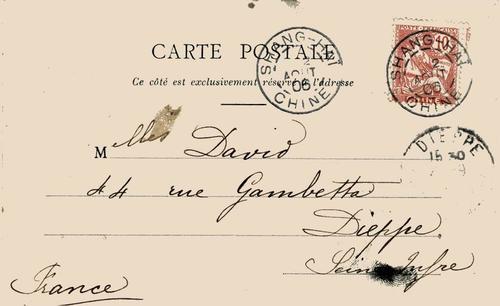 CARTE POSTALE
Ce côté est exclusivement réservé à l'Adresse
SHANG-HAI
AOUT
06
CHINE
40
SHANG-HAI
AOUT
06
CHINE
DIEPPE
15 30
Mlles David
44 rue Gambetta
Dieppe
Seine Infre
France